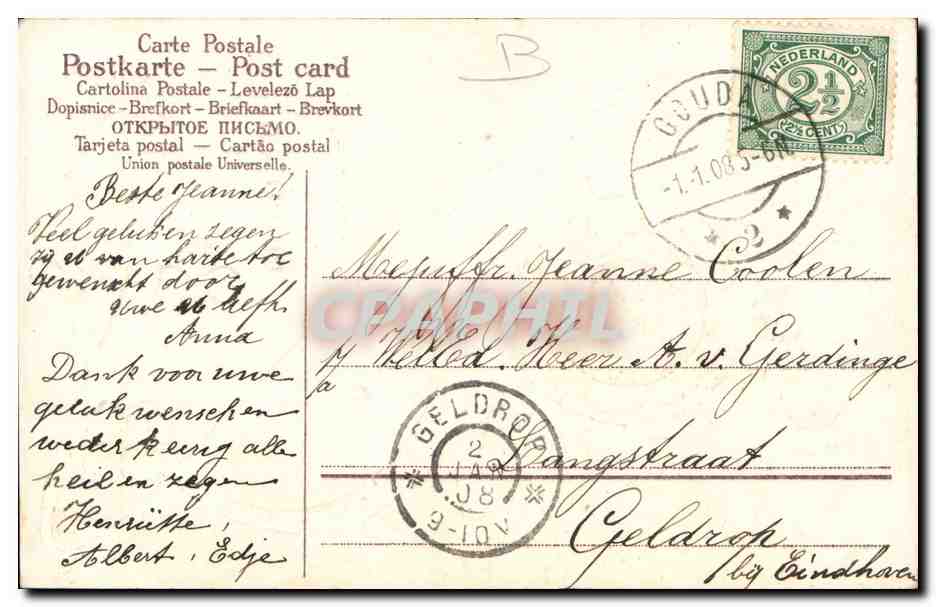 Carte Postale
Postkarte – Post card
Cartolina Postale – Levelező Lap
Dopisnice – Brefkort – Briefkaart – Brevkort
ОТКРЫТОЕ ПИСЬМО.
Tarjeta postal — Cartão postal
Union postale Universelle.
B
NEDERLAND
2½
(2½ CENT)
GOUDA
-1.-1.08 5-6N
* 2 *
Beste Jeanne!
Veel geluk en zegen
zij u van harte toe
gewenscht door
uwe u liefh.
Anna
Dank voor uwe
geluk wenschen
wederkeerig alle
heil en zegen
Henriëtte,
Albert, Edje
Mejuffr. Jeanne Coolen
p/a WelEd. Heer A. v. Gerdinge
Langstraat
Geldrop
bij Eindhoven
GELDROP
2
JAN
08
9-10V
CPAPHIL